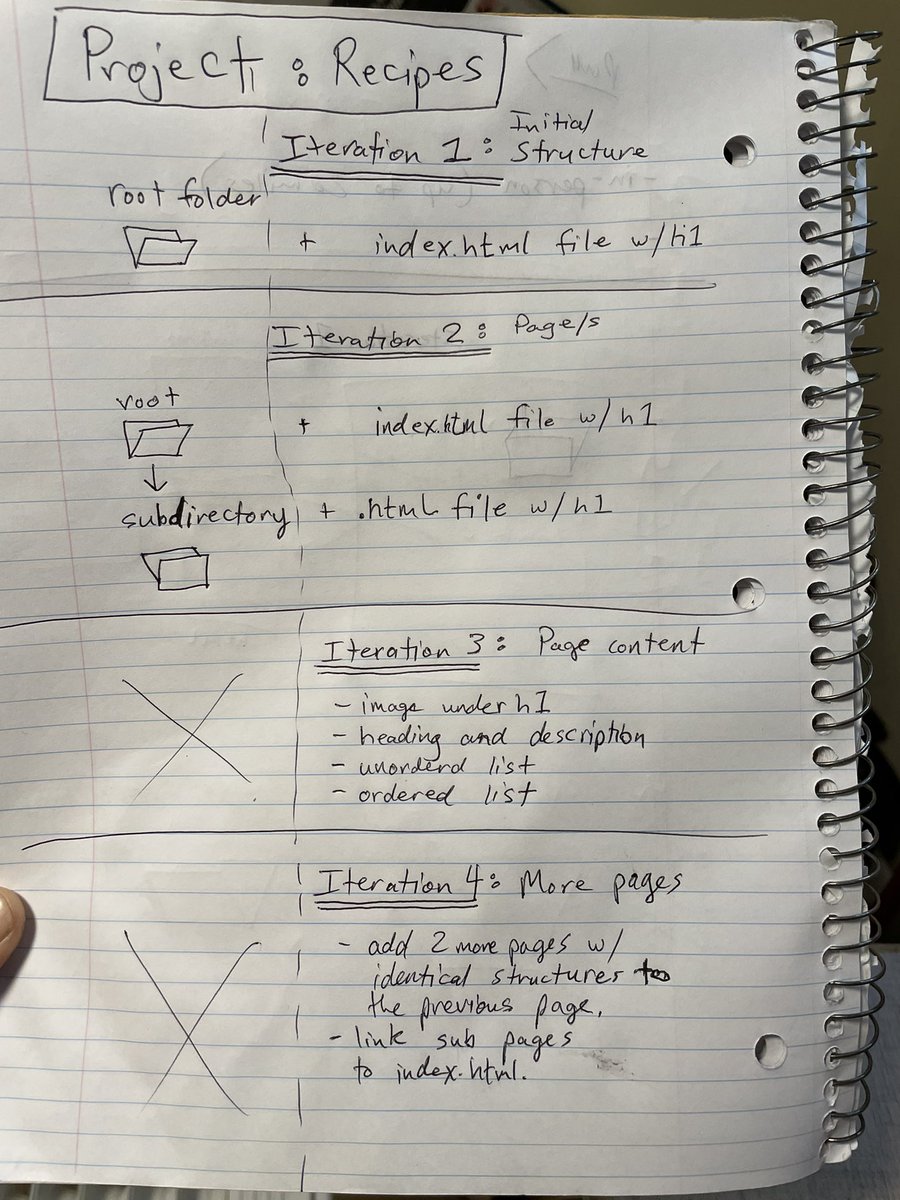 Project : Recipes
Iteration 1 : Initial
Structure
root folder
+ index.html file w/ h1
Iteration 2 : Page/s
root
+ index.html file w/ h1
subdirectory + .html file w/ h1
Iteration 3 : Page content
- image under h1
- heading and description
- unorderd list
- ordered list
Iteration 4 : More pages
- add 2 more pages w/
identical structures to
the previous page.
- link sub pages
to index.html.